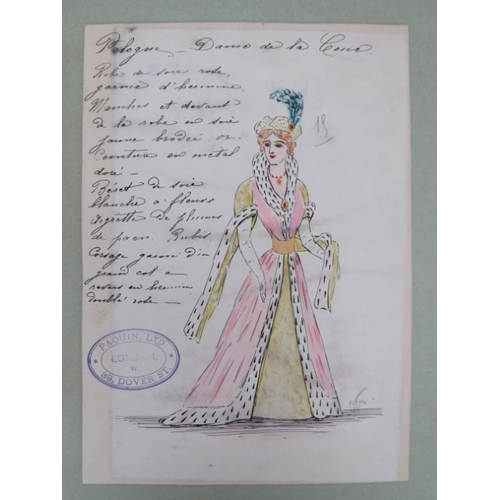 Pologne – Dame de la Cour
Robe de soie rose,
garnie d'hermine
Manches et devant
de la robe en soie
jaune brodée or.
Ceinture en métal
doré –
Béret de soie
blanche à fleurs
aigrette de plumes
de paon. Rubis.
Corsage garni d'un
grand col à
revers en hermine
doublé rose –
13
PAQUIN, LTD.
LONDON,
W
39, DOVER ST.